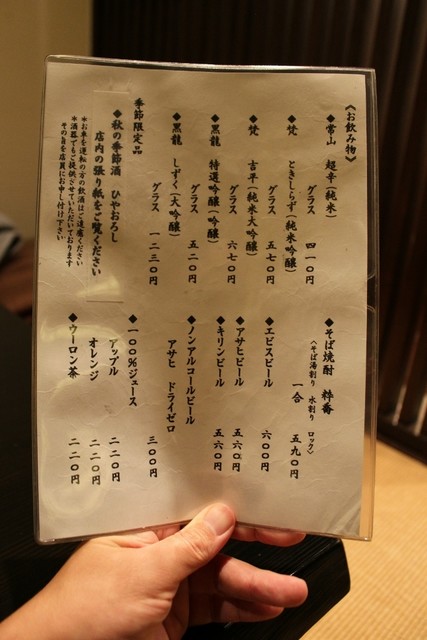 《お飲み物》
◆常山　超辛(純米)
グラス　四一〇円
◆梵　ときしらず(純米吟醸)
グラス　五七〇円
◆梵　吉平(純米大吟醸)
グラス　六七〇円
◆黒龍　特選吟醸(吟醸)
グラス　五二〇円
◆黒龍　しずく(大吟醸)
グラス　一二三〇円
季節限定品
◆秋の季節酒　ひやおろし
店内の張り紙をご覧ください
＊お車を運転の方の飲酒はご遠慮ください
＊酒器でもご提供させていただいております
その旨を店員にお申し付け下さい
◆そば焼酎　粋蕎
〈そば湯割り　水割り　ロック〉
一合　五九〇円
◆エビスビール　六〇〇円
◆アサヒビール　五六〇円
◆キリンビール　五六〇円
◆ノンアルコールビール
アサヒ　ドライゼロ　三〇〇円
◆一〇〇％ジュース
アップル　二二〇円
オレンジ　二二〇円
◆ウーロン茶　二二〇円